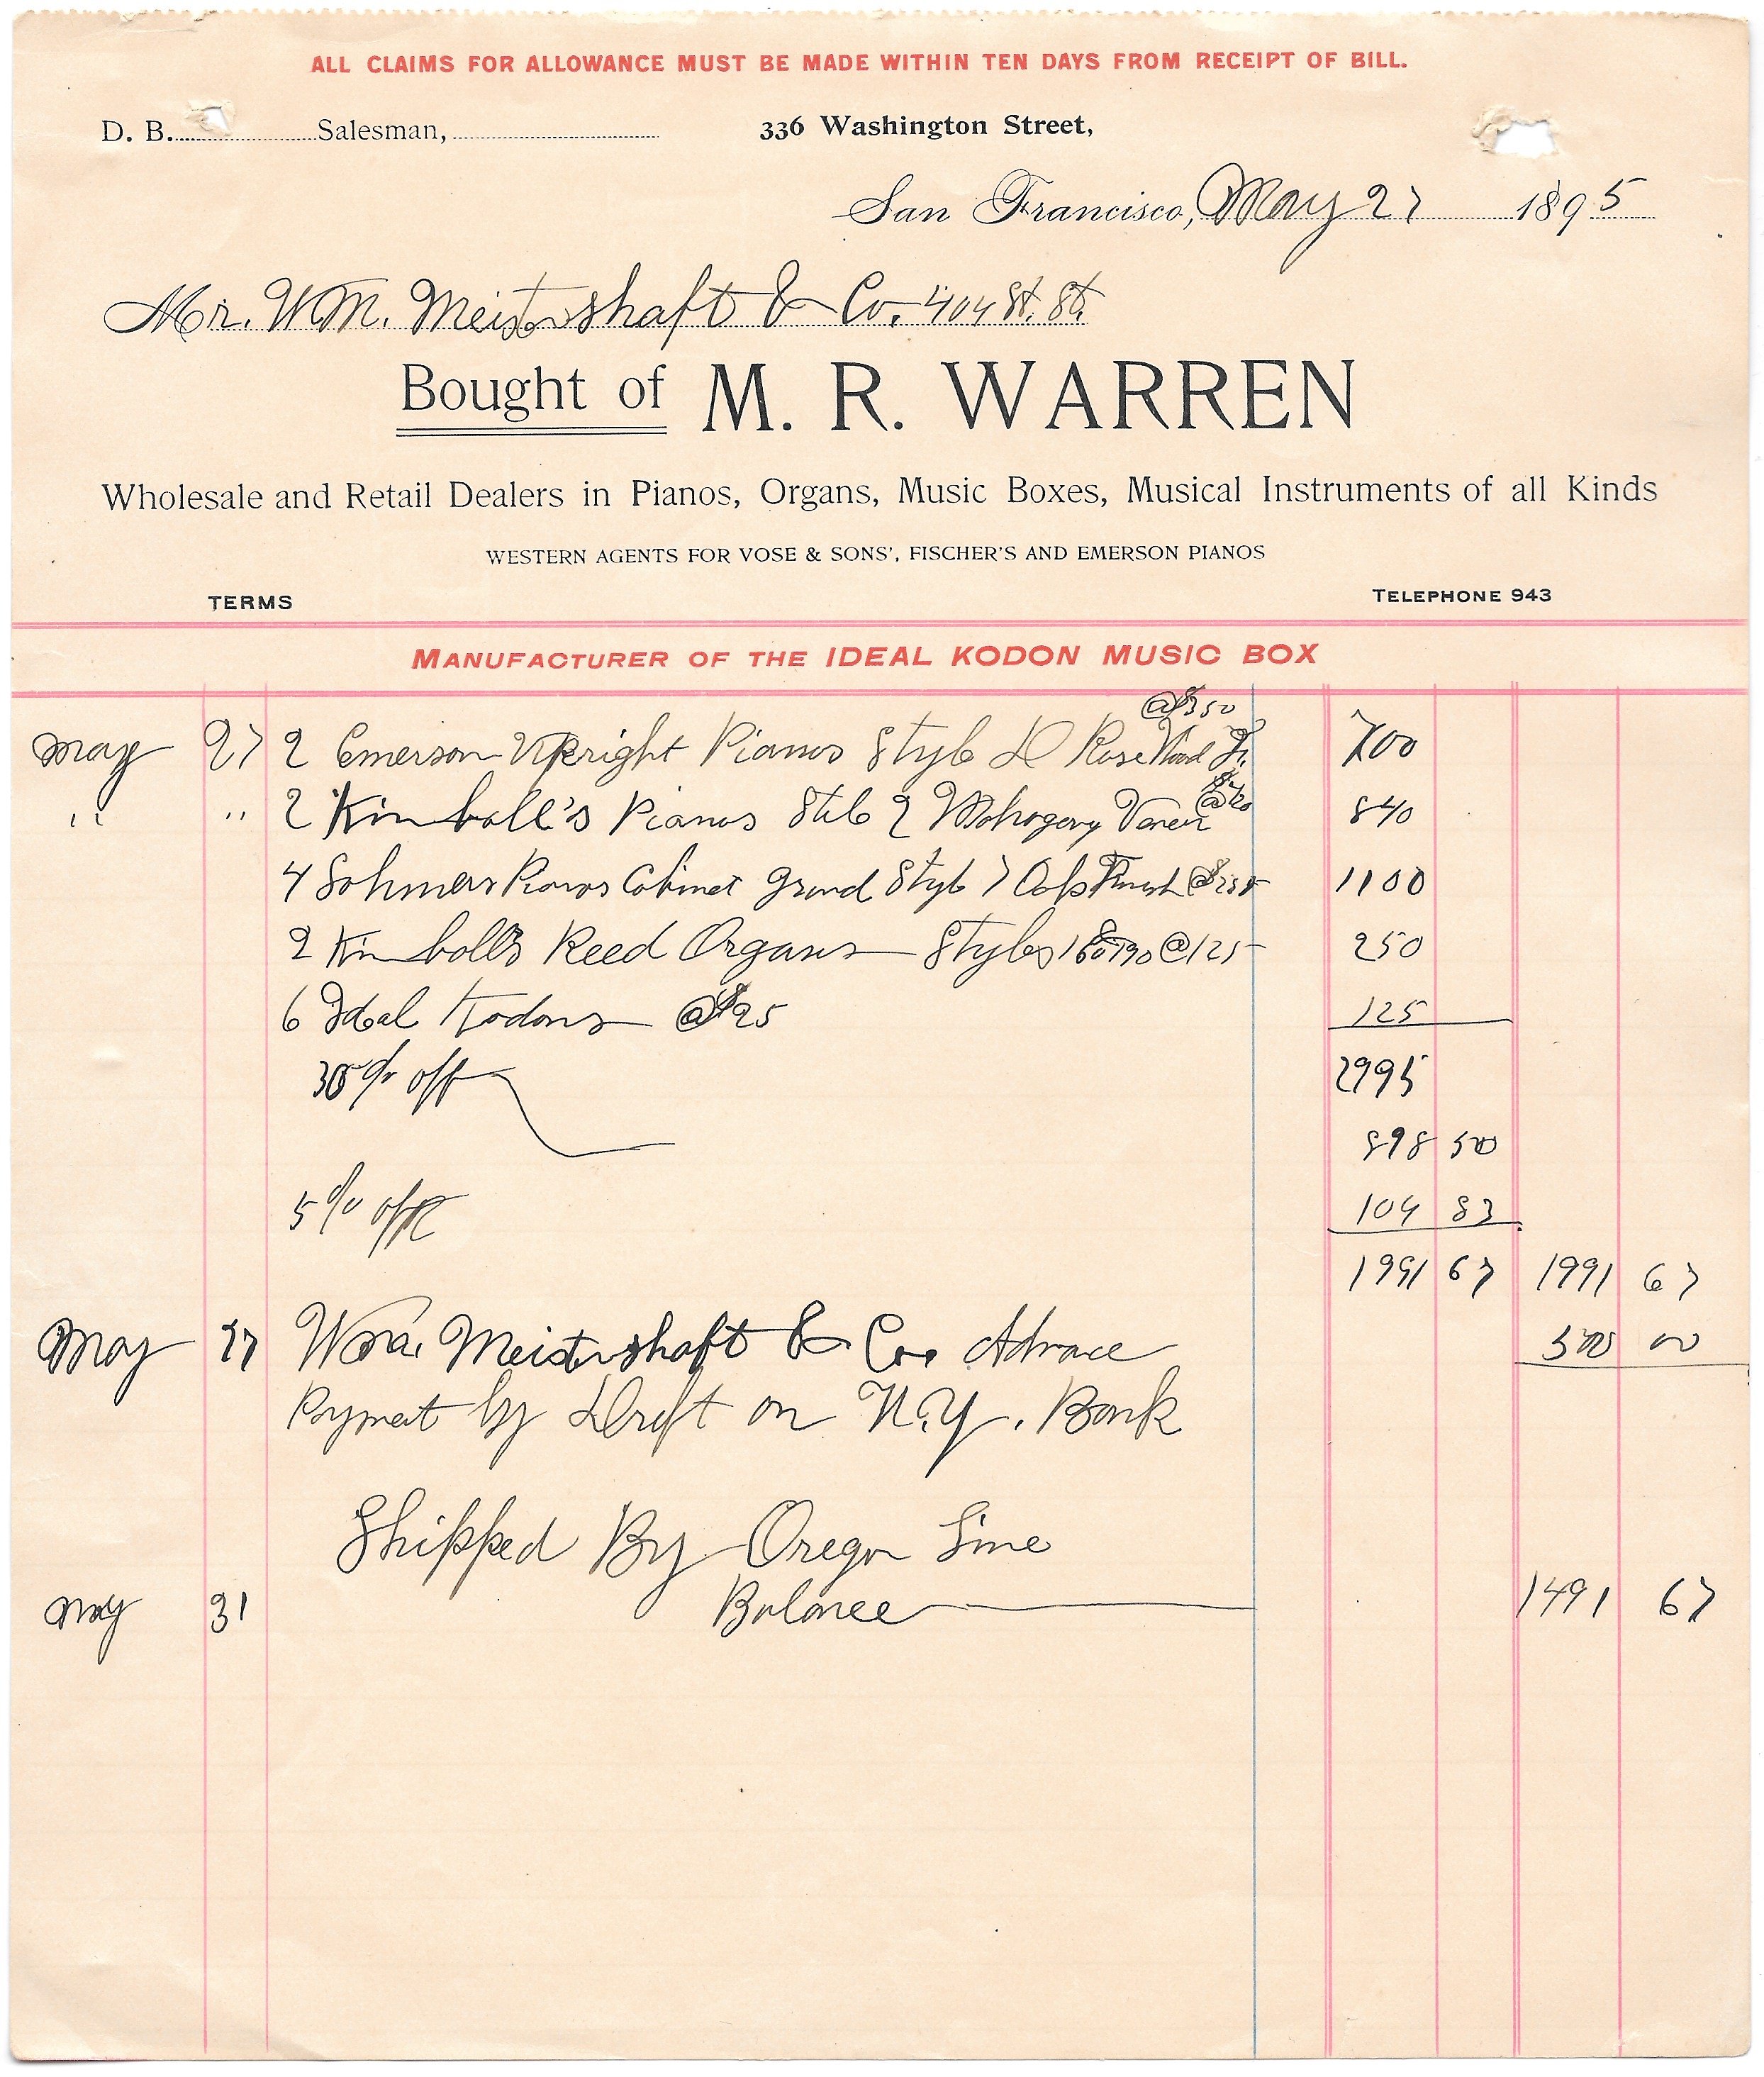 ALL CLAIMS FOR ALLOWANCE MUST BE MADE WITHIN TEN DAYS FROM RECEIPT OF BILL.
D. B. Salesman, 336 Washington Street,
San Francisco, May 27 1895
Mr. WM. Meistershaft & Co. 404 St. St.
Bought of M. R. WARREN
Wholesale and Retail Dealers in Pianos, Organs, Music Boxes, Musical Instruments of all Kinds
WESTERN AGENTS FOR VOSE & SONS', FISCHER'S AND EMERSON PIANOS
TERMS TELEPHONE 943
MANUFACTURER OF THE IDEAL KODON MUSIC BOX
@$350
May 27 2 Emerson Upright Pianos Style D Rose Wood 700
" " 2 Kimball's Pianos Style 2 Mahogany 840
4 Sohmers Pianos Cabinet Grand Style 7 Finish 1100
2 Kimball's Reed Organs Styles @125 250
6 Ideal Kodons @$25 125
30% off 2995
898 50
5% off 104 83
1991 67 1991 67
May 27 Wm. Meistershaft & Co. Advance 500 00
Payment by Draft on N.Y. Bank
Shipped By Oregon Line
May 31 Balance 1491 67